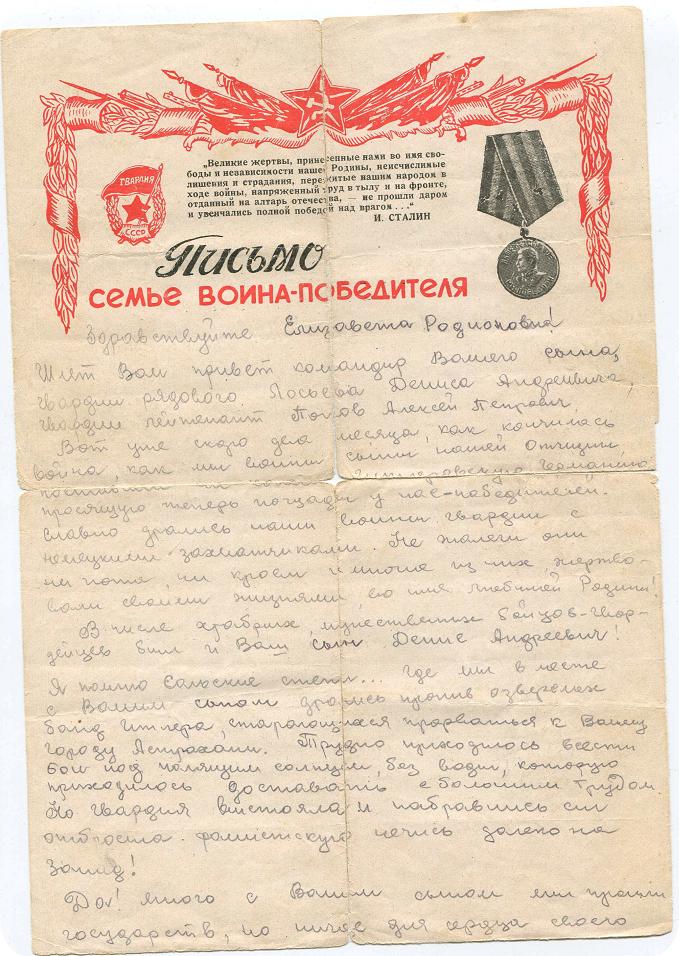 „Великие жертвы, принесенные нами во имя сво-
боды и независимости нашей Родины, неисчислимые
лишения и страдания, пережитые нашим народом в
ходе войны, напряженный труд в тылу и на фронте,
отданный на алтарь отечества, — не прошли даром
и увенчались полной победой над врагом..."
И. СТАЛИН
ГВАРДИЯ
СССР
Письмо
семье воина-победителя
Здравствуйте Елизавета Родионовна!
Шлет Вам привет командир Вашего сына,
гвардии рядового Лосьева Дениса Андреевича,
гвардии лейтенант Попов Алексей Петрович.
Вот уже скоро два месяца, как кончилась
война, как мы воины сыны нашей Отчизны
поставили на Гитлеровскую Германию
просящую теперь пощады у нас-победителей.
Славно дрались наши воины гвардии с
немецкими захватчиками. Не жалели они
ни пота, ни крови и многие из них жертво-
вали своими жизнями во имя любимой Родины!
В числе храбрых, мужественных бойцов-гвар-
дейцев был и Ваш сын Денис Андреевич!
Я помню Сальские степи... где мы вместе
с Вашим сыном дрались против озверелых
банд Гитлера, старающихся прорваться к Вашему
городу Астрахани. Трудно приходилось вести
бои под палящим солнцем, без воды, которую
приходилось доставать с большим трудом.
Но гвардия выстояла и набравшись сил
отбросила фашистскую нечисть далеко на
Запад!
Да! много с Вашим сыном мы прошли
государств, но ничье для сердца своего